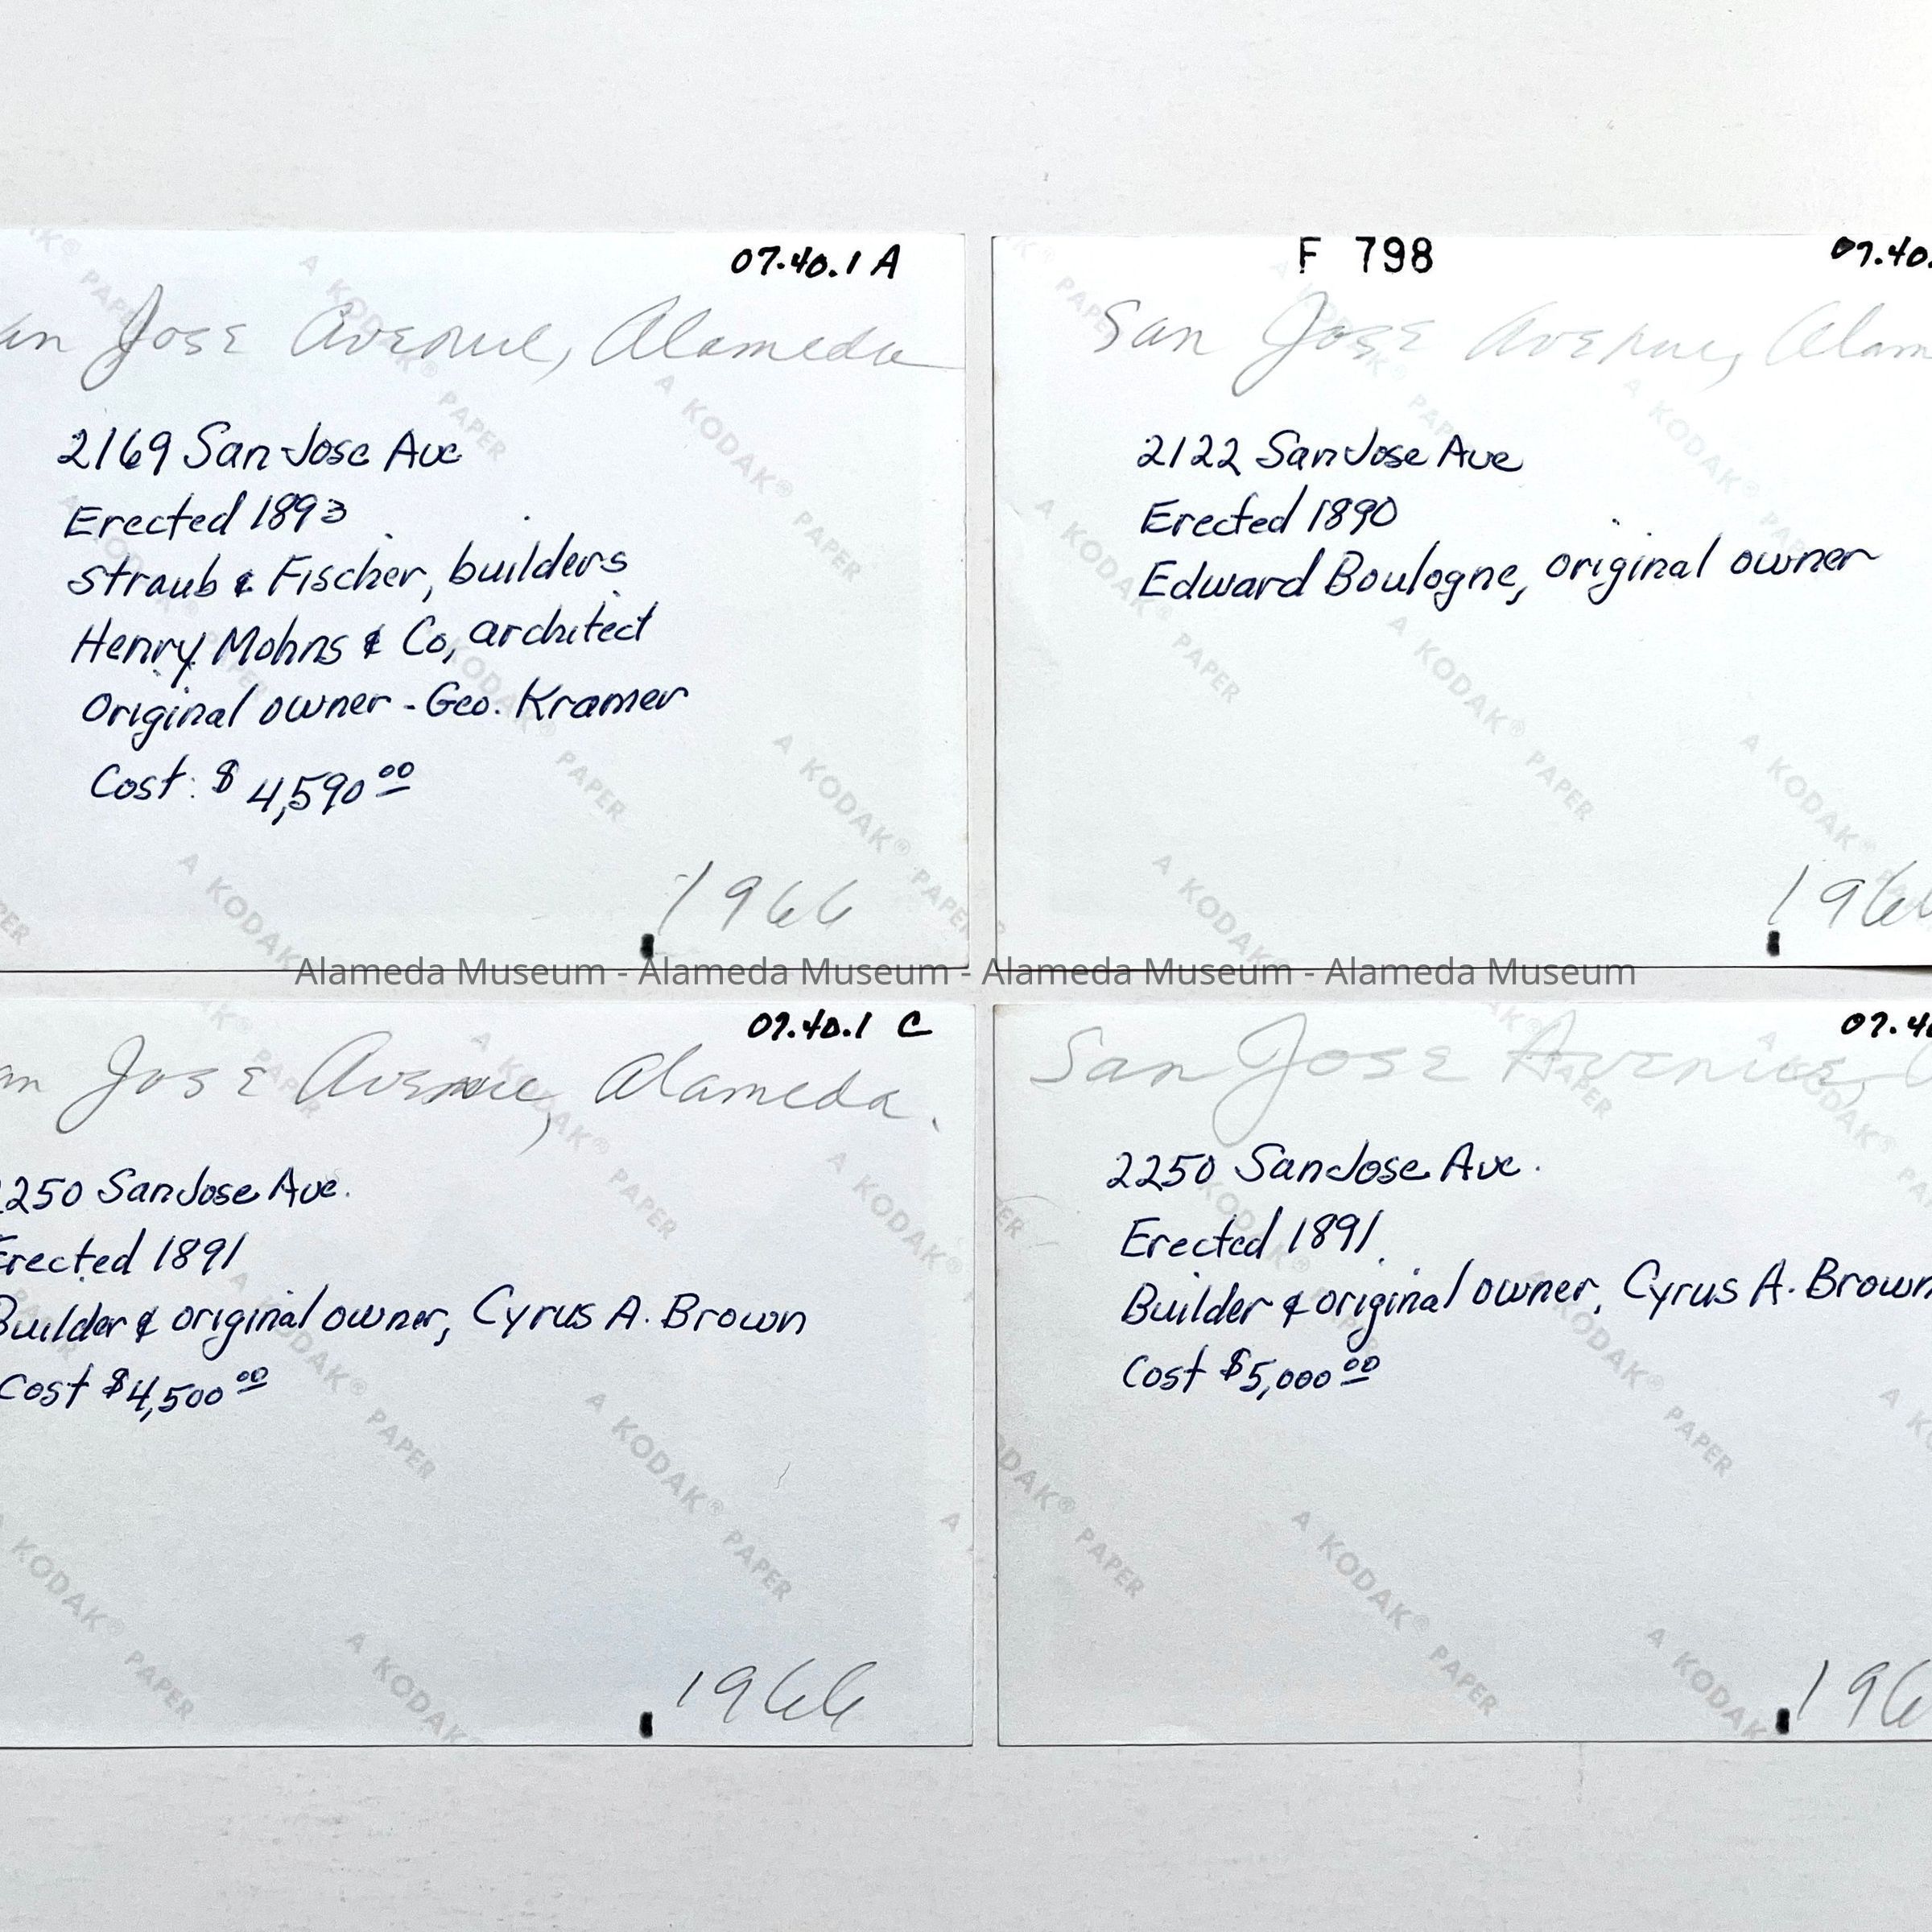 07.40.1 A
San Jose Avenue, Alameda
2169 San Jose Ave
Erected 1893
Straub & Fischer, builders
Henry Mohns & Co, architect
Original owner - Geo. Kramer
Cost: $ 4,590.00
1966
F 798
07.40.
San Jose Avenue, Alam
2122 San Jose Ave
Erected 1890
Edward Boulogne, original owner
1966
Alameda Museum - Alameda Museum - Alameda Museum - Alameda Museum
07.40.1 C
San Jose Avenue, Alameda.
2250 San Jose Ave.
Erected 1891
Builder & original owner, Cyrus A. Brown
Cost $4,500.00
1966
07.40
San Jose Avenue,
2250 San Jose Ave.
Erected 1891
Builder & original owner, Cyrus A. Brown
Cost $5,000.00
196
A KODAK® PAPER